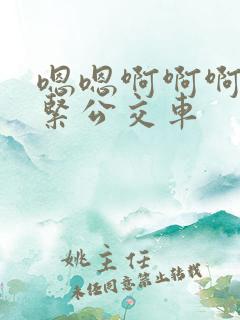 嗯嗯啊啊啊
紧公交车
姚主任
未经同意禁止转载